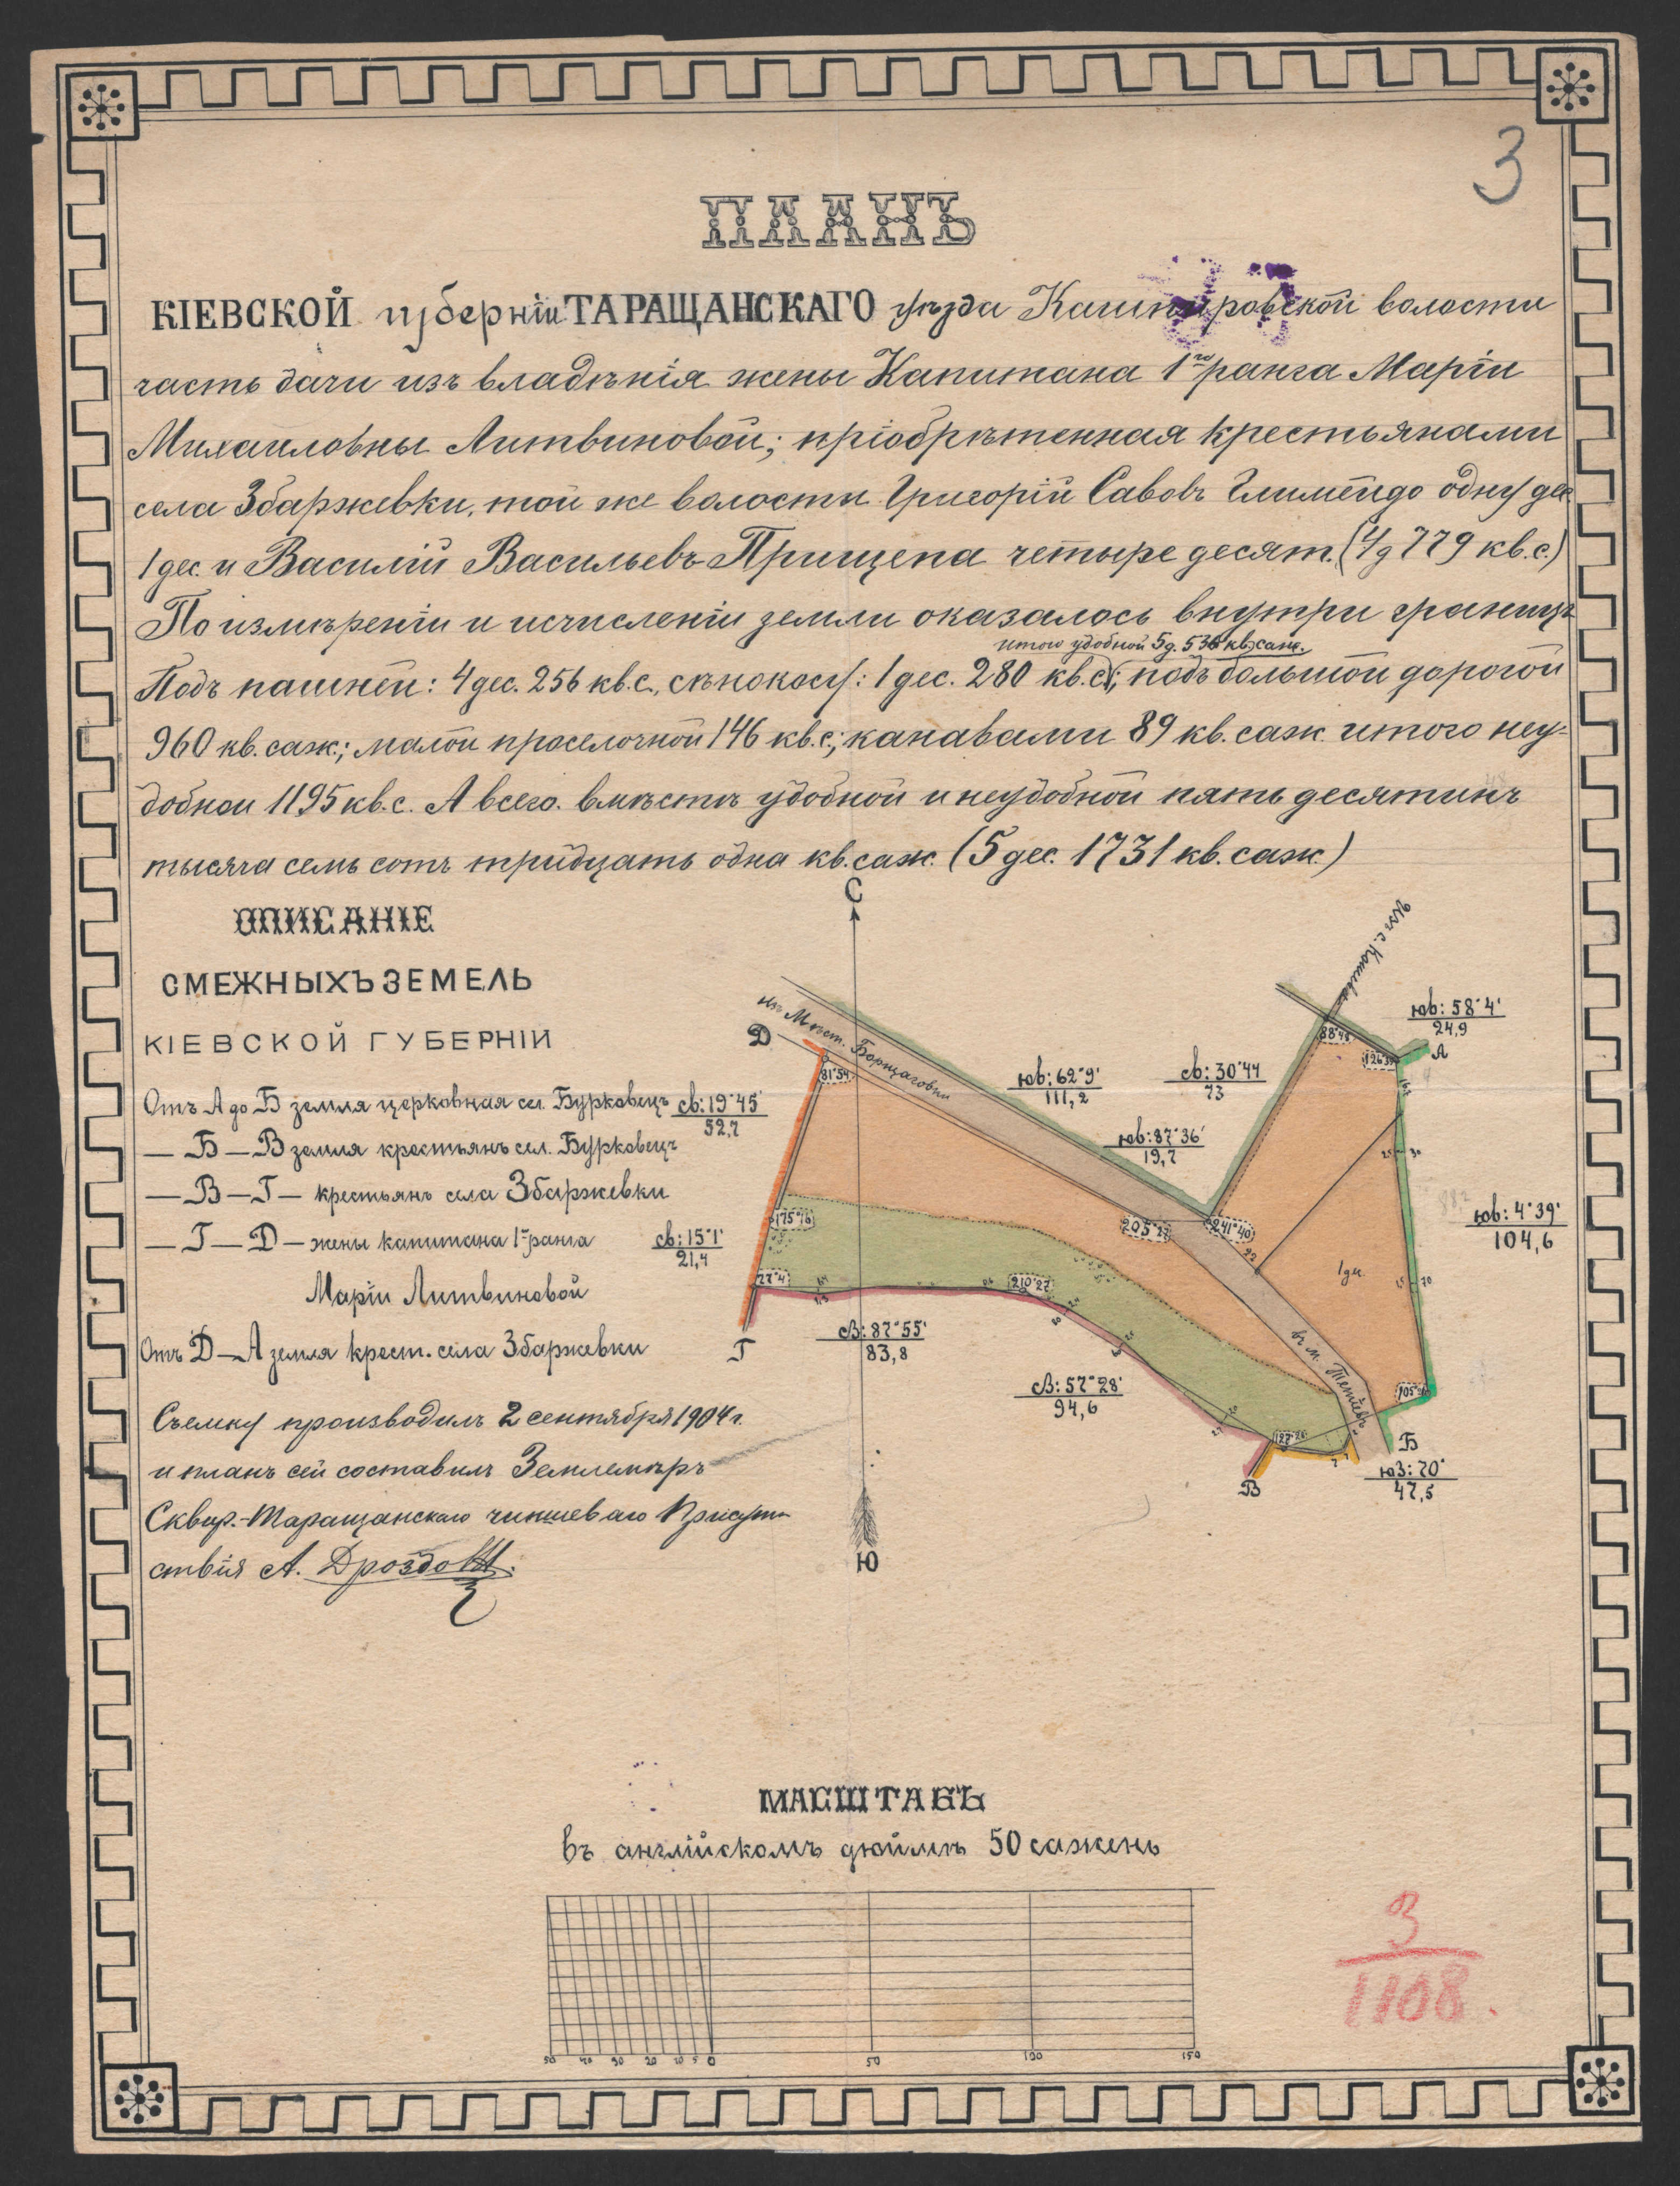 3
ПЛАНЪ
КІЕВСКОЙ губерніи ТАРАЩАНСКАГО уѣзда Кашперовской волости
часть дачи изъ владѣнія жены Капитана 1го ранга Маріи
Михаиловны Литвиновой; пріобрѣтенная крестьянами
села Збаржевки, той же волости Григорій Савовъ одну дес
1 дес. и Василій Васильевъ Прищепа четыре десят. (4 д 779 кв. с.)
По измѣреніи и исчисленіи земли оказалось внутри границъ
итого удобной 5 д. 536 кв. саж.
Подъ пашней: 4 дес. 256 кв. с., сѣнокосу: 1 дес. 280 кв. с.; подъ большой дорогой
960 кв. саж.; малой проселочной 146 кв. с.; канавами 89 кв. саж. итого неу-
добной 1195 кв. с. А всего вмѣстѣ удобной и неудобной пять десятинъ
тысяча семь сотъ тридцать одна кв. саж. (5 дес. 1731 кв. саж.)
С
ОПИСАНІЕ
СМЕЖНЫХЪ ЗЕМЕЛЬ
КІЕВСКОЙ ГУБЕРНІИ
Отъ А до Б земля церковная сел. Бурковецъ
— Б — В земля крестьянъ сел. Бурковецъ
— В — Г — крестьянъ села Збаржевки
— Г — Д — жены капитана 1го ранга
Маріи Литвиновой
Отъ Д — А земля крест. села Збаржевки
Съемку производилъ 2 сентября 1904 г.
и планъ сей составилъ Землемѣръ
Сквир.-Таращанскаго чиншеваго Присут-
ствія А. Дроздов
изъ с. Кошева
юв: 58°4'
24,9
А
изъ Мѣст. Борщаговки
Д
81°54
88°48
юв: 62°9'
111,2
св: 30°44
73
св: 19°45'
52,7
юв: 87°36'
19,7
25 30
175°16
205°27
241°40
22
юв: 4°39'
104,6
св: 15°1'
21,4
1 дес.
77°4
210°27
15 70
Г
св: 87°55'
83,8
въ м. Тетіевъ
св: 57°28'
94,6
127°28
Б
В
юз: 70°
47,5
Ю
МАСШТАБЪ
въ англійскомъ дюймѣ 50 сажень
50 40 30 20 10 5 0 50 100 150
3
1108.